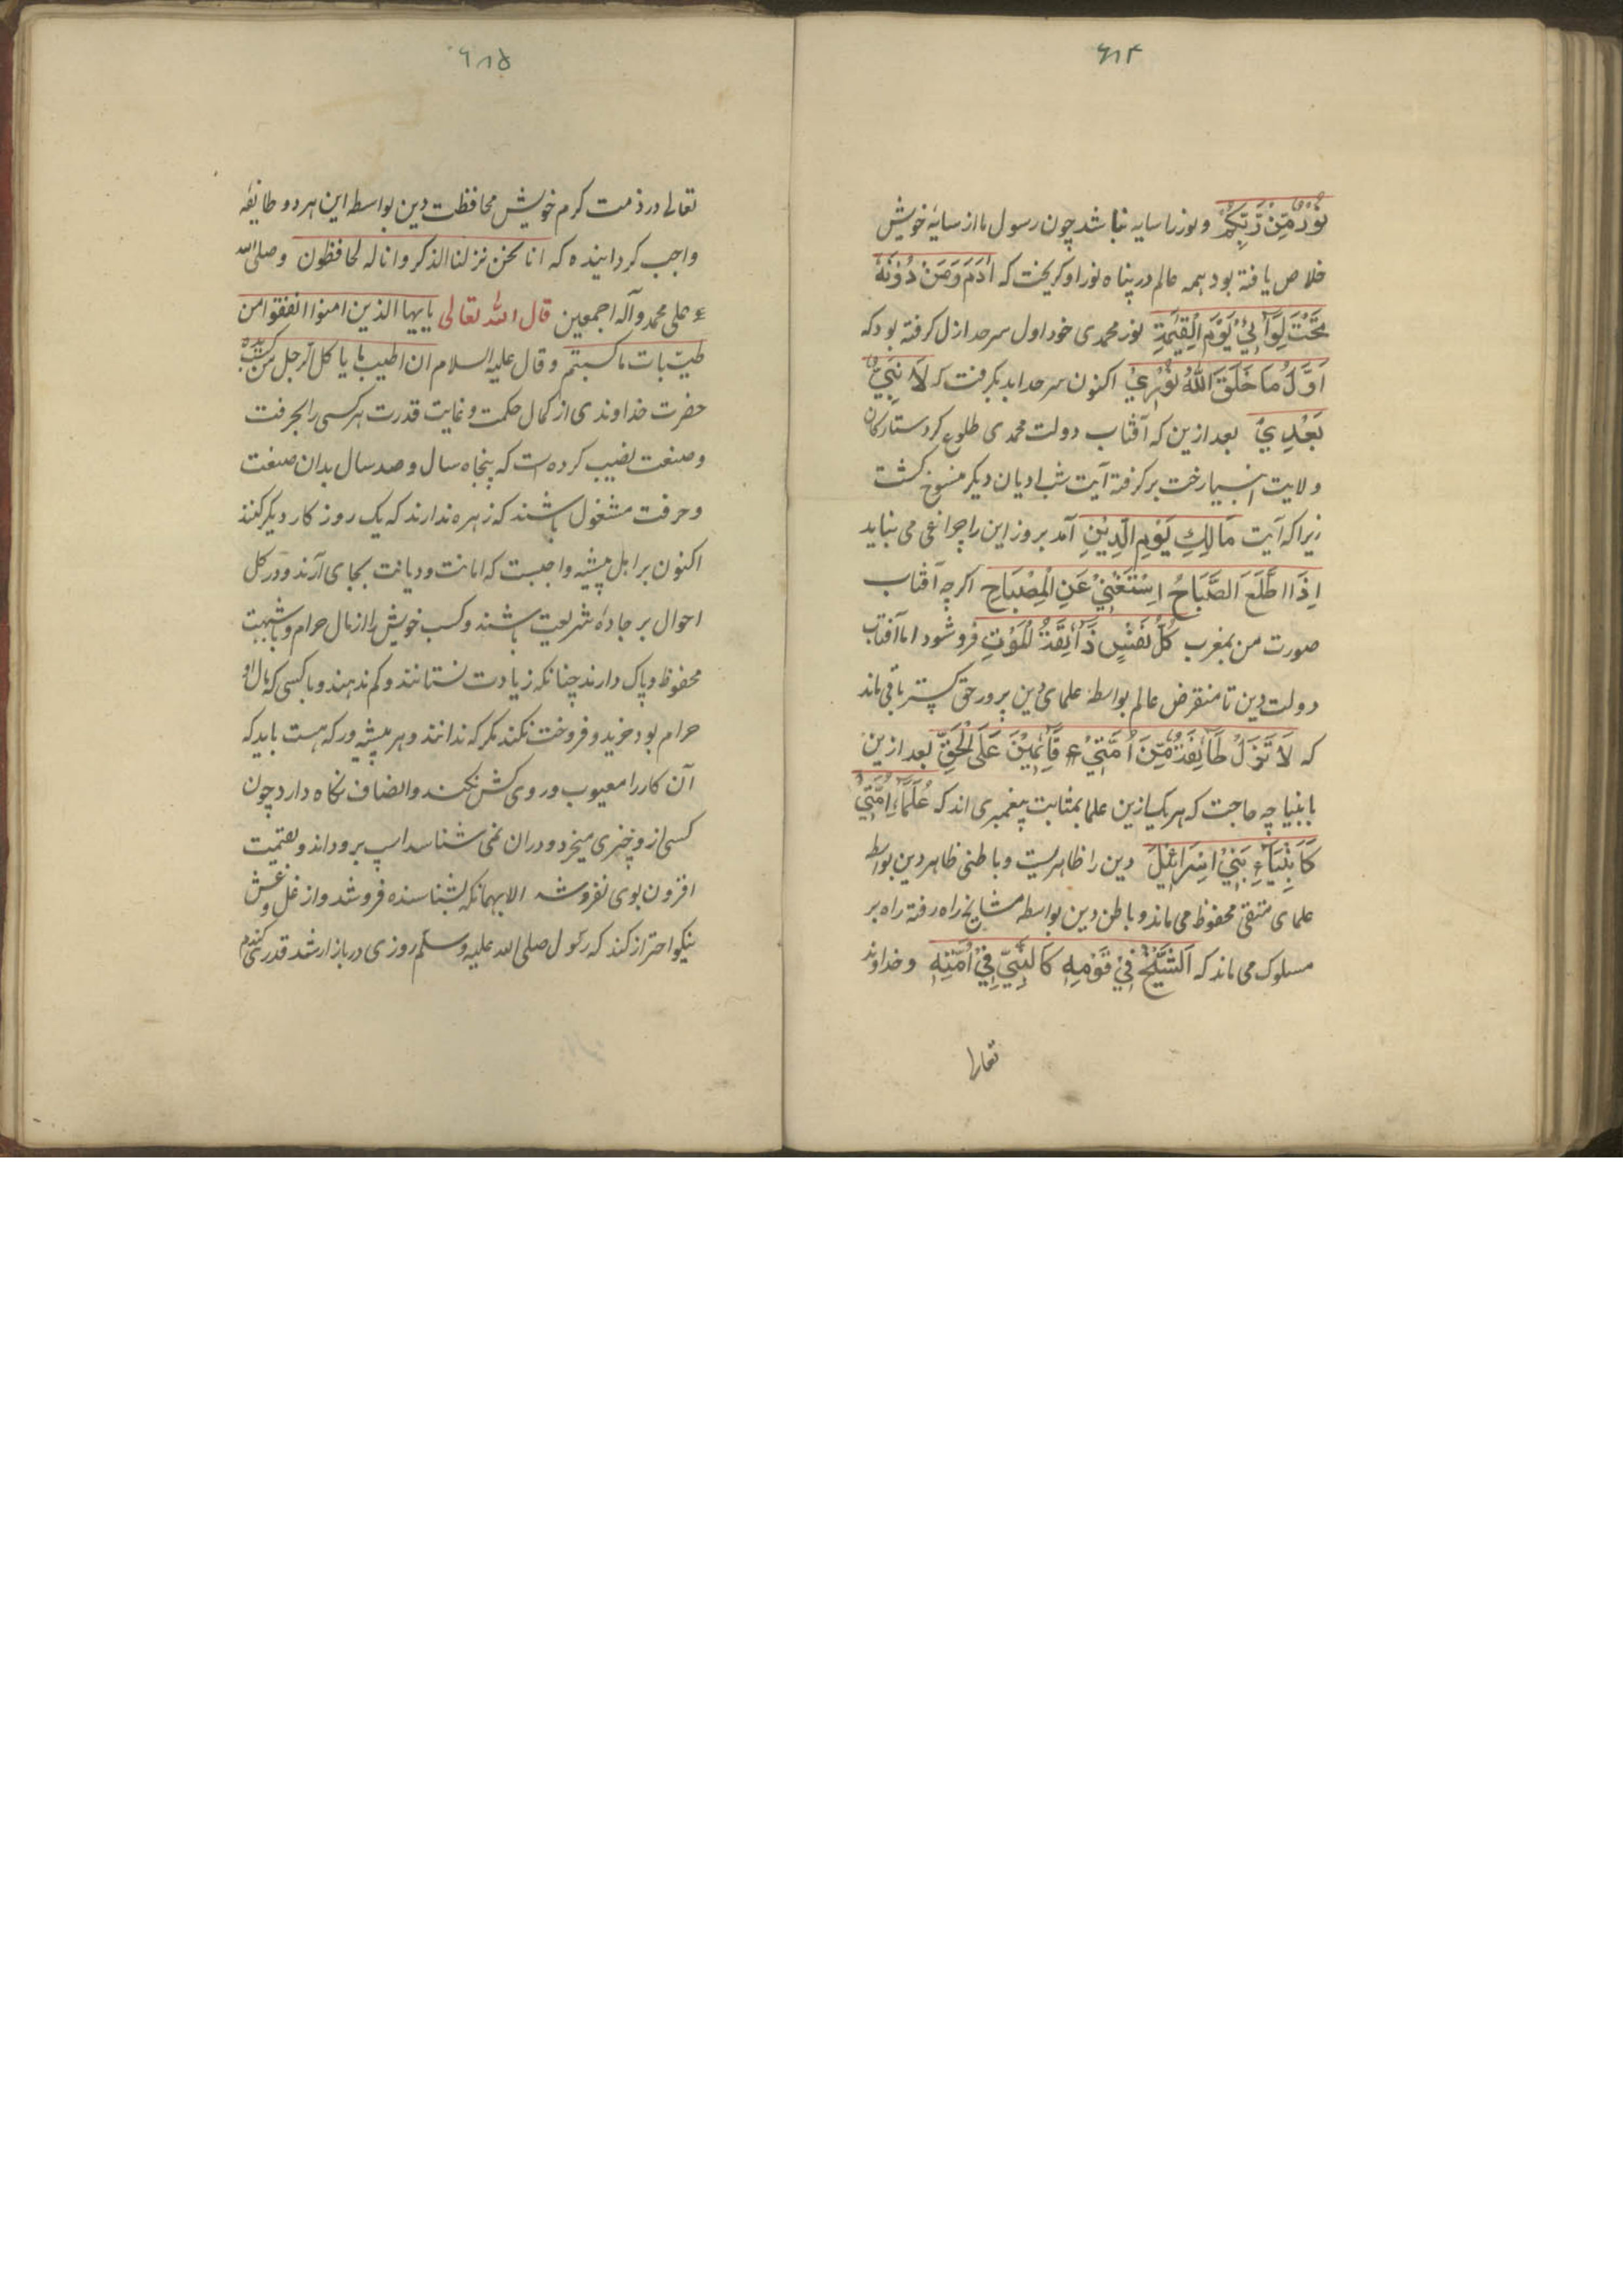 ۶۱۴
نُورٌ مِّنْ رَّبِّكُمْ و نور را سایه نباشد چون رسول ما از سایهٔ خویش
خلاص یافته بود همه عالم در پناه نور او کریخت که اٰدَمَ وَمَنْ دُوْنَهٗ
تَحْتَ لِوَآئِیْ یَوْمَ الْقِیٰمَةِ نور محمدی خود اول سرحد ازل کرفته بود که
اَوَّلُ مَا خَلَقَ اللّٰهُ نُوْرِیْ اکنون سرحد ابد بکرفت که لَا نَبِیَّ
بَعْدِیْ بعد ازین که آفتاب دولت محمدی طلوع کرد ستارکان
ولایت انبیا رخت برکرفته آیت شب ادیان دیکر منسوخ کشت
زیرا که آیت مَالِكِ یَوْمِ الدِّیْنِ آمد بروز این را چراغی می نباید
اِذَا اطَّلَعَ الصَّبَاحُ اِسْتَغْنِیْ عَنِ الْمِصْبَاحِ اکرچه آفتاب
صورت من بمغرب كُلُّ نَفْسٍ ذَآئِقَةُ الْمَوْتِ فروشود اما آفتاب
دولت دین تا منقرض عالم بواسطهٔ علمای دین پرور حق کستر باقی ماند
که لَا تَزَلُ طَآئِفَةٌ مِّنَ اُمَّتِیْ قَآئِمِیْنَ عَلَی الْحَقِّ بعد ازین
بانبیا چه حاجت که هریک ازین علما بمثابت پیغمبری اند که عُلَمَآءِ اُمَّتِیْ
كَاَنْبِیَآءِ بَنِیْ اِسْرَائِیْلَ دین را ظاهریست و باطنی ظاهر دین بواسطه
علمای متقی محفوظ می ماند و باطن دین بواسطه مشایخ راه رفته راه بر
مسلوک می ماند که اَلشَّیْخُ فِیْ قَوْمِهٖ كَالنَّبِیِّ فِیْ اُمَّتِهٖ و خداوند
تعالی
۶۱۵
تعالی در ذمت کرم خویش محافظت دین بواسطه این هر دو طایفه
واجب کردانیده که انا نحن نزلنا الذکر وانا له لحافظون وصلی الله
علی محمد وآله اجمعین قال الله تعالی یایها الذین امنوا انفقوا من
طیبات ما کسبتم وقال علیه السلام ان اطیب ما یاکل الرجل من کسب یده
حضرت خداوندی از کمال حکمت و غایت قدرت هر کسی را بحرفت
و صنعت نصیب کرده است که پنجاه سال و صد سال بدان صنعت
و حرفت مشغول باشند که زهره ندارند که یک روز کار دیکر کنند
اکنون بر اهل پیشه واجبست که امانت و دیانت بجای آرند و در کل
احوال بر جادهٔ شریعت باشند و کسب خویش را از مال حرام و باشبهت
محفوظ و پاک دارند چنانکه زیادت نستانند و کم ندهند و با کسی که مال او
حرام بود خرید و فروخت نکند مکر که ندانند و هر پیشه ور که هست باید که
آن کار را معیوب و روی کش نکند و انصاف نکاه دارد چون
کسی ازو چیزی میخرد و دران نمی شناسد اسپ برو داند و بقیمت
افزون بوی نفروشد الا بهمانکه بشناسنده فروشد و از غل و غش
نیکو احتراز کند که رسول صلی الله علیه وسلم روزی در بازار شد قدری کندم